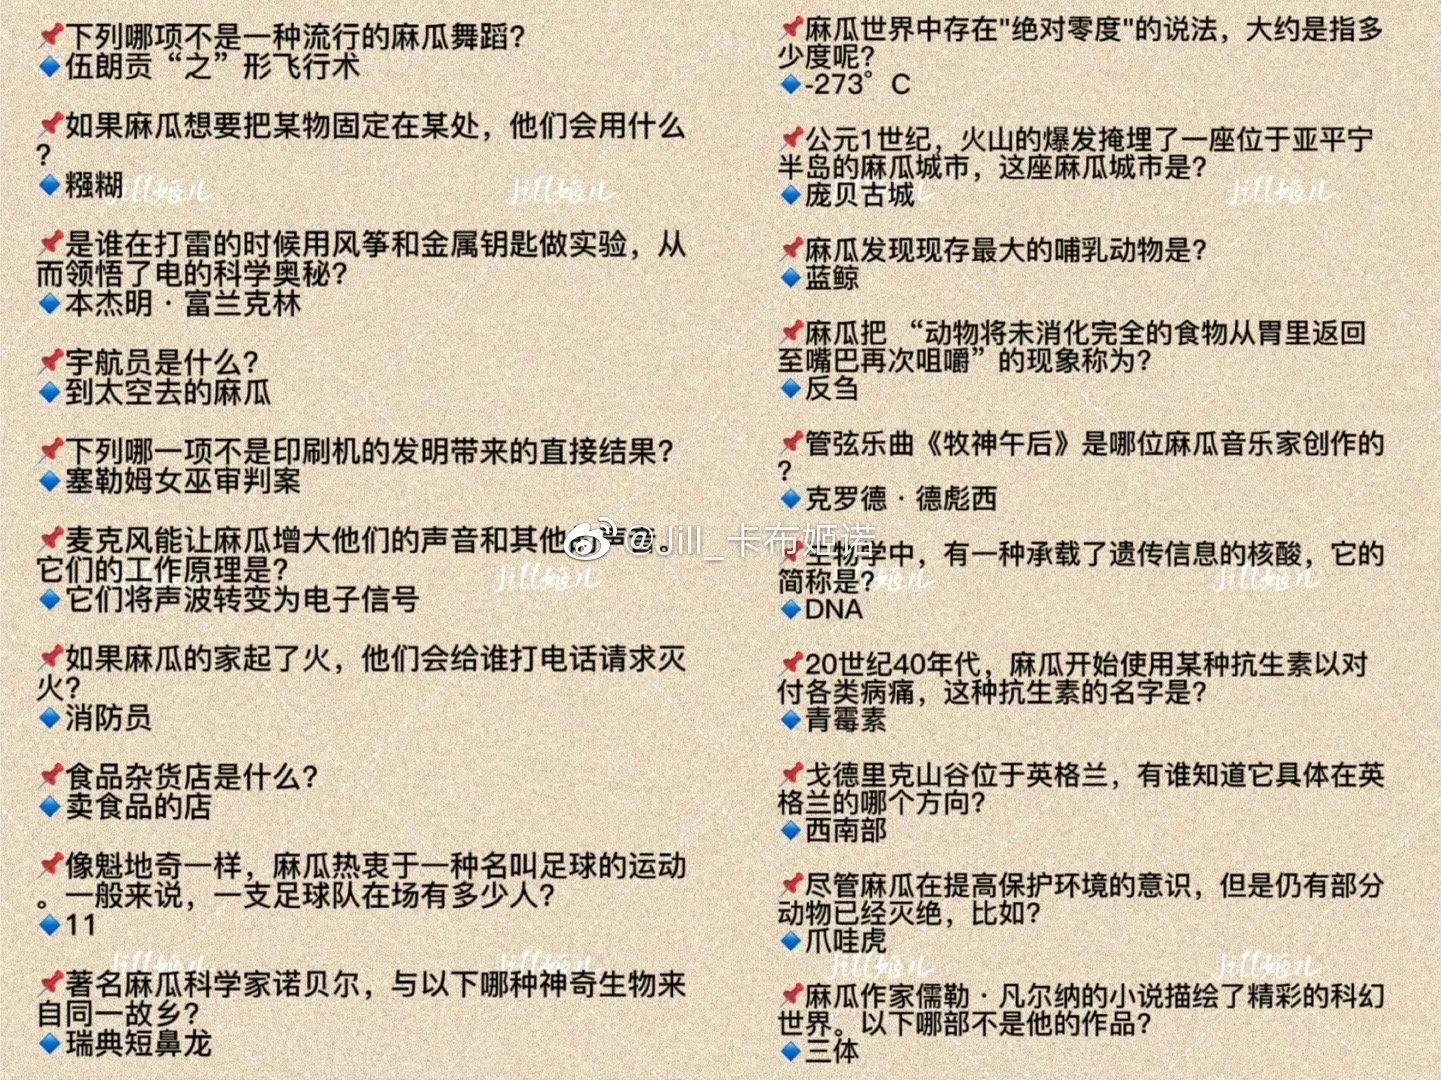 下列哪项不是一种流行的麻瓜舞蹈？
伍朗贡“之”形飞行术
如果麻瓜想要把某物固定在某处，他们会用什么
？
糨糊
是谁在打雷的时候用风筝和金属钥匙做实验，从
而领悟了电的科学奥秘？
本杰明·富兰克林
宇航员是什么？
到太空去的麻瓜
下列哪一项不是印刷机的发明带来的直接结果？
塞勒姆女巫审判案
麦克风能让麻瓜增大他们的声音和其他的声音。
它们的工作原理是？
它们将声波转变为电子信号
如果麻瓜的家起了火，他们会给谁打电话请求灭
火？
消防员
食品杂货店是什么？
卖食品的店
像魁地奇一样，麻瓜热衷于一种名叫足球的运动
。一般来说，一支足球队在场有多少人？
11
著名麻瓜科学家诺贝尔，与以下哪种神奇生物来
自同一故乡？
瑞典短鼻龙
麻瓜世界中存在"绝对零度"的说法，大约是指多
少度呢？
-273°C
公元1世纪，火山的爆发掩埋了一座位于亚平宁
半岛的麻瓜城市，这座麻瓜城市是？
庞贝古城
麻瓜发现现存最大的哺乳动物是？
蓝鲸
麻瓜把“动物将未消化完全的食物从胃里返回
至嘴巴再次咀嚼”的现象称为？
反刍
管弦乐曲《牧神午后》是哪位麻瓜音乐家创作的
？
克罗德·德彪西
生物学中，有一种承载了遗传信息的核酸，它的
简称是？
DNA
20世纪40年代，麻瓜开始使用某种抗生素以对
付各类病痛，这种抗生素的名字是？
青霉素
戈德里克山谷位于英格兰，有谁知道它具体在英
格兰的哪个方向？
西南部
尽管麻瓜在提高保护环境的意识，但是仍有部分
动物已经灭绝，比如？
爪哇虎
麻瓜作家儒勒·凡尔纳的小说描绘了精彩的科幻
世界。以下哪部不是他的作品？
三体
@Jill_卡布姬诺
Jill姬儿
Jill姬儿
Jill姬儿
Jill姬儿
Jill姬儿
Jill姬儿
Jill姬儿
Jill姬儿
Jill姬儿
Jill姬儿
Jill姬儿
Jill姬儿